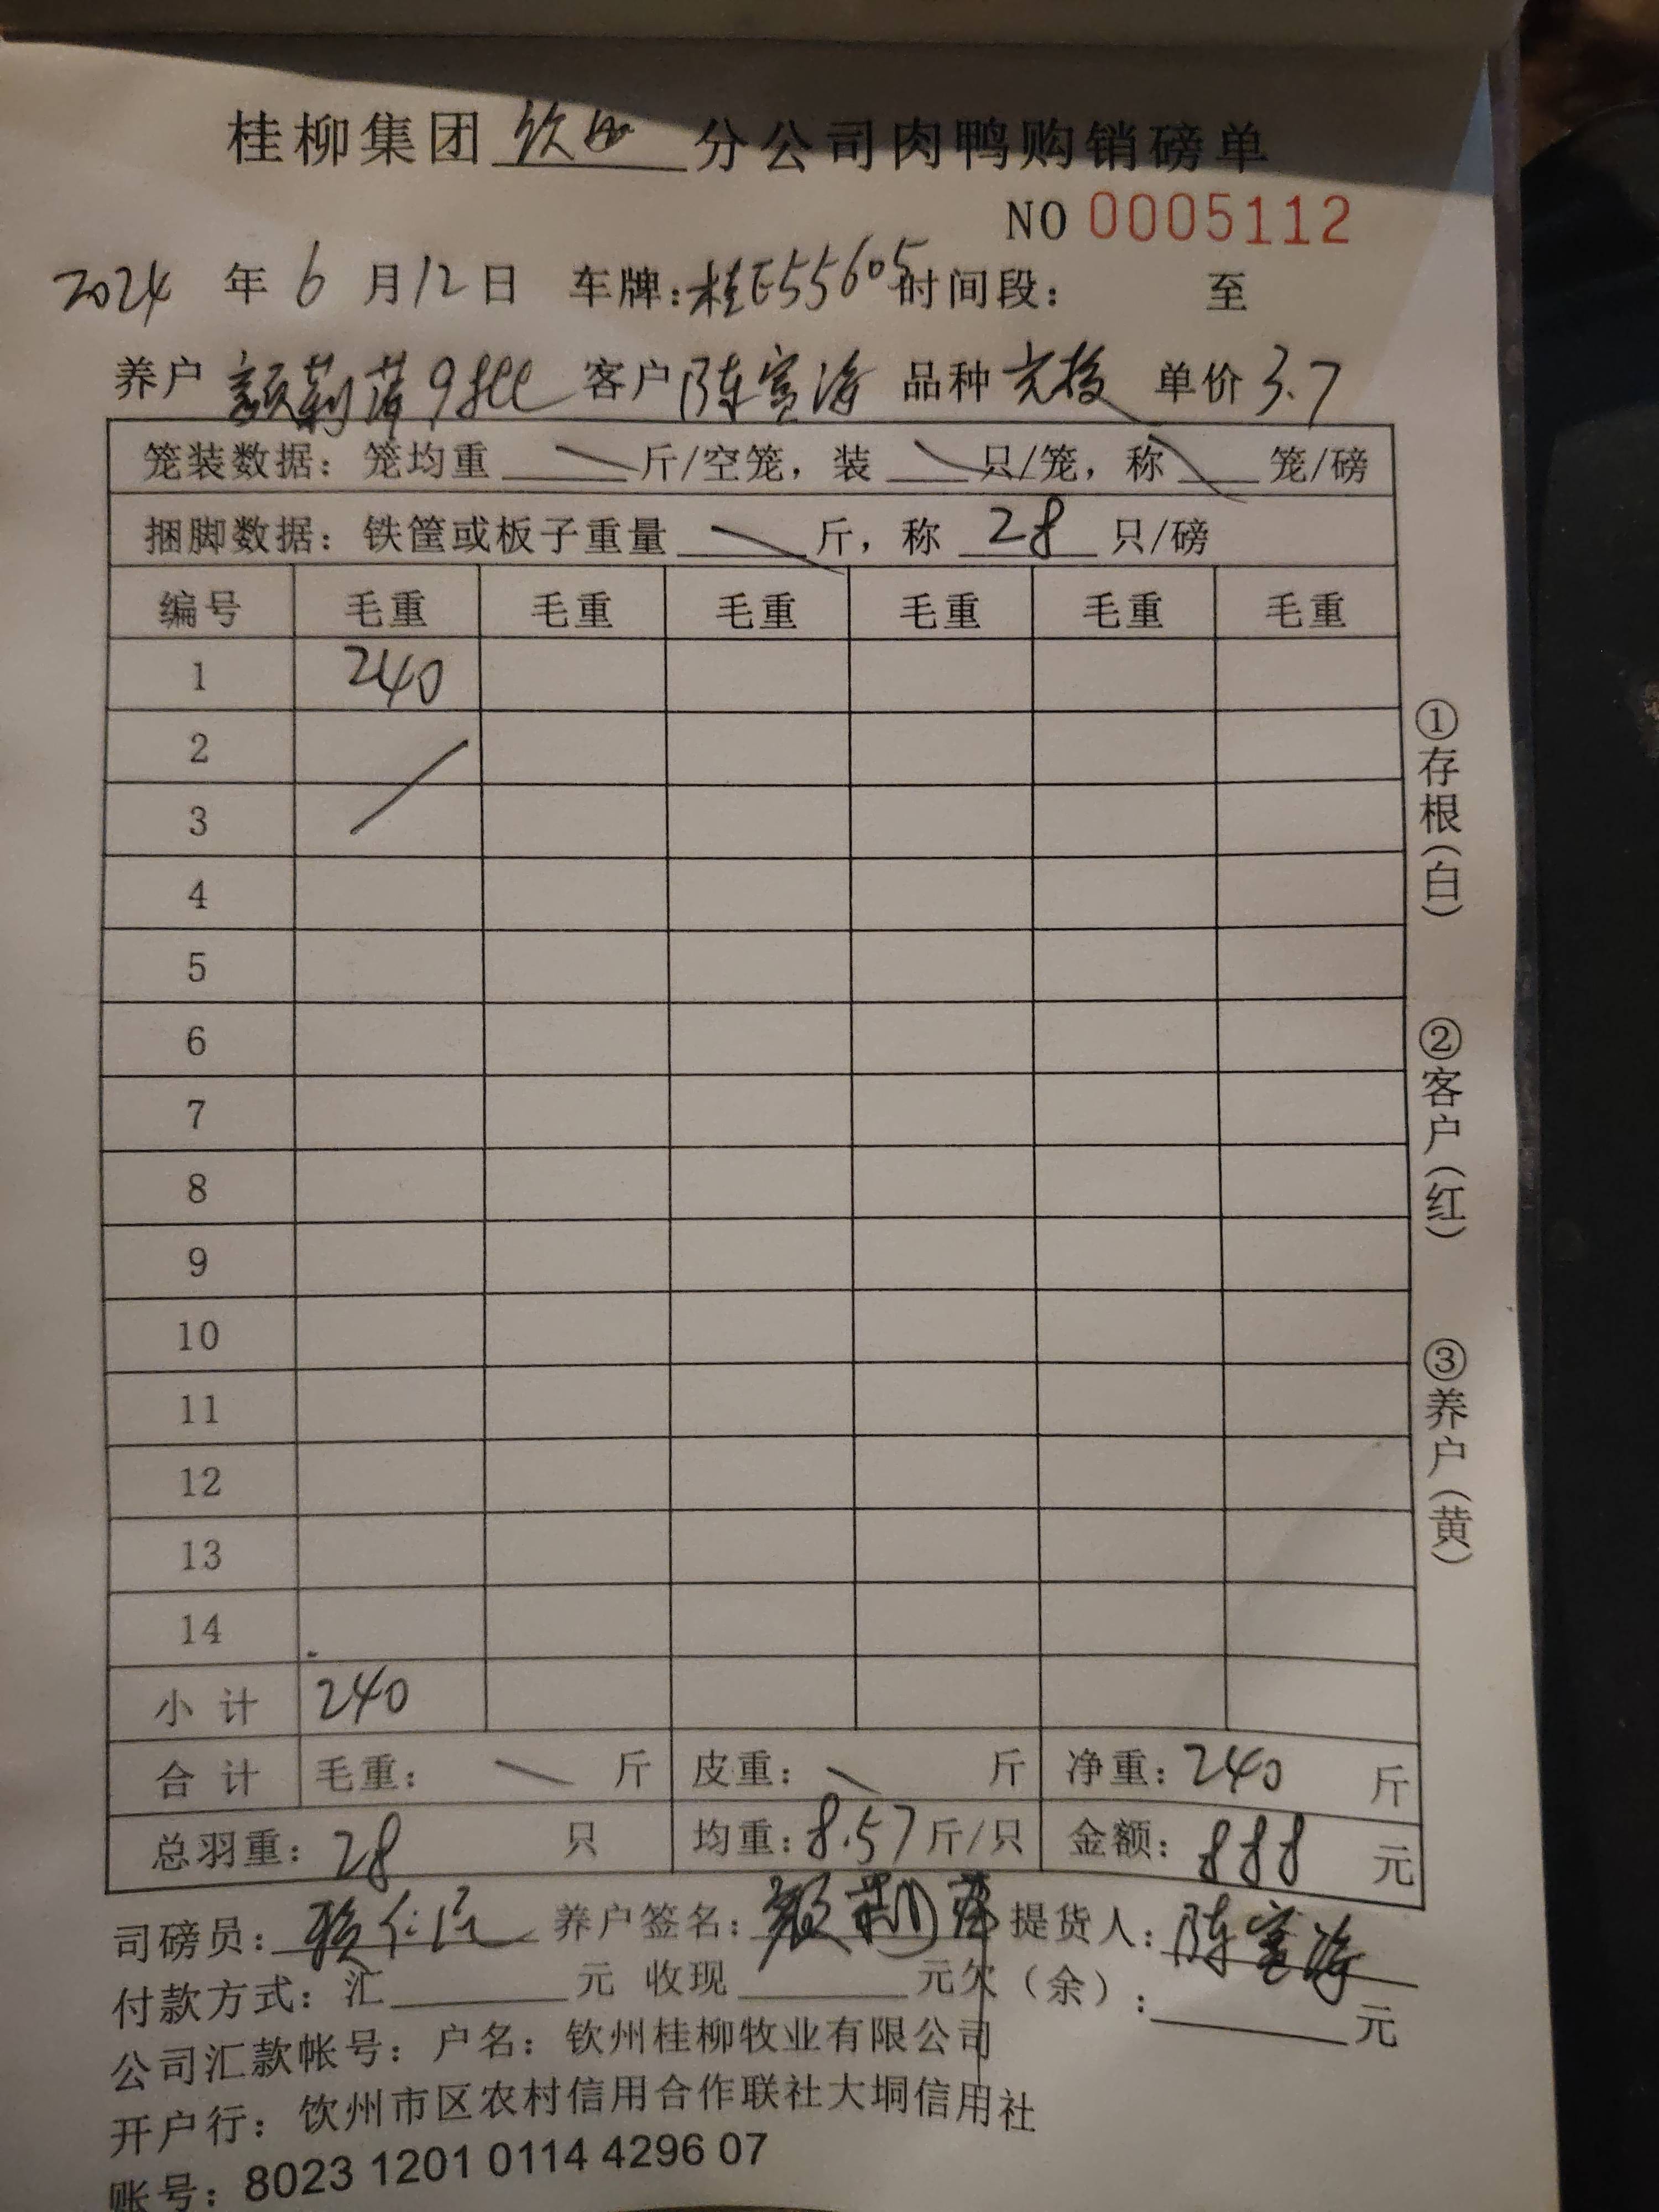 桂柳集团 钦州 分公司肉鸭购销磅单
NO 0005112
2024 年 6 月 12 日 车牌:桂E55605 时间段: 至
养户 颜莉萍 9批 客户 陈寞海 品种 单价 3.7
笼装数据: 笼均重 斤/空笼, 装 只/笼, 称 笼/磅
捆脚数据: 铁筐或板子重量 斤, 称 28 只/磅
编号 毛重 毛重 毛重 毛重 毛重 毛重
1 240
2
3
4
5
6
7
8
9
10
11
12
13
14
小计 240
合计 毛重: 斤 皮重: 斤 净重: 240 斤
总羽重: 28 只 均重: 8.57 斤/只 金额: 888 元
司磅员: 养户签名: 颜莉萍 提货人: 陈海
付款方式: 汇 元 收现 元欠(余): 元
公司汇款帐号: 户名: 钦州桂柳牧业有限公司
开户行: 钦州市区农村信用合作联社大垌信用社
账号: 8023 1201 0114 4296 07
①存根(白)
②客户(红)
③养户(黄)